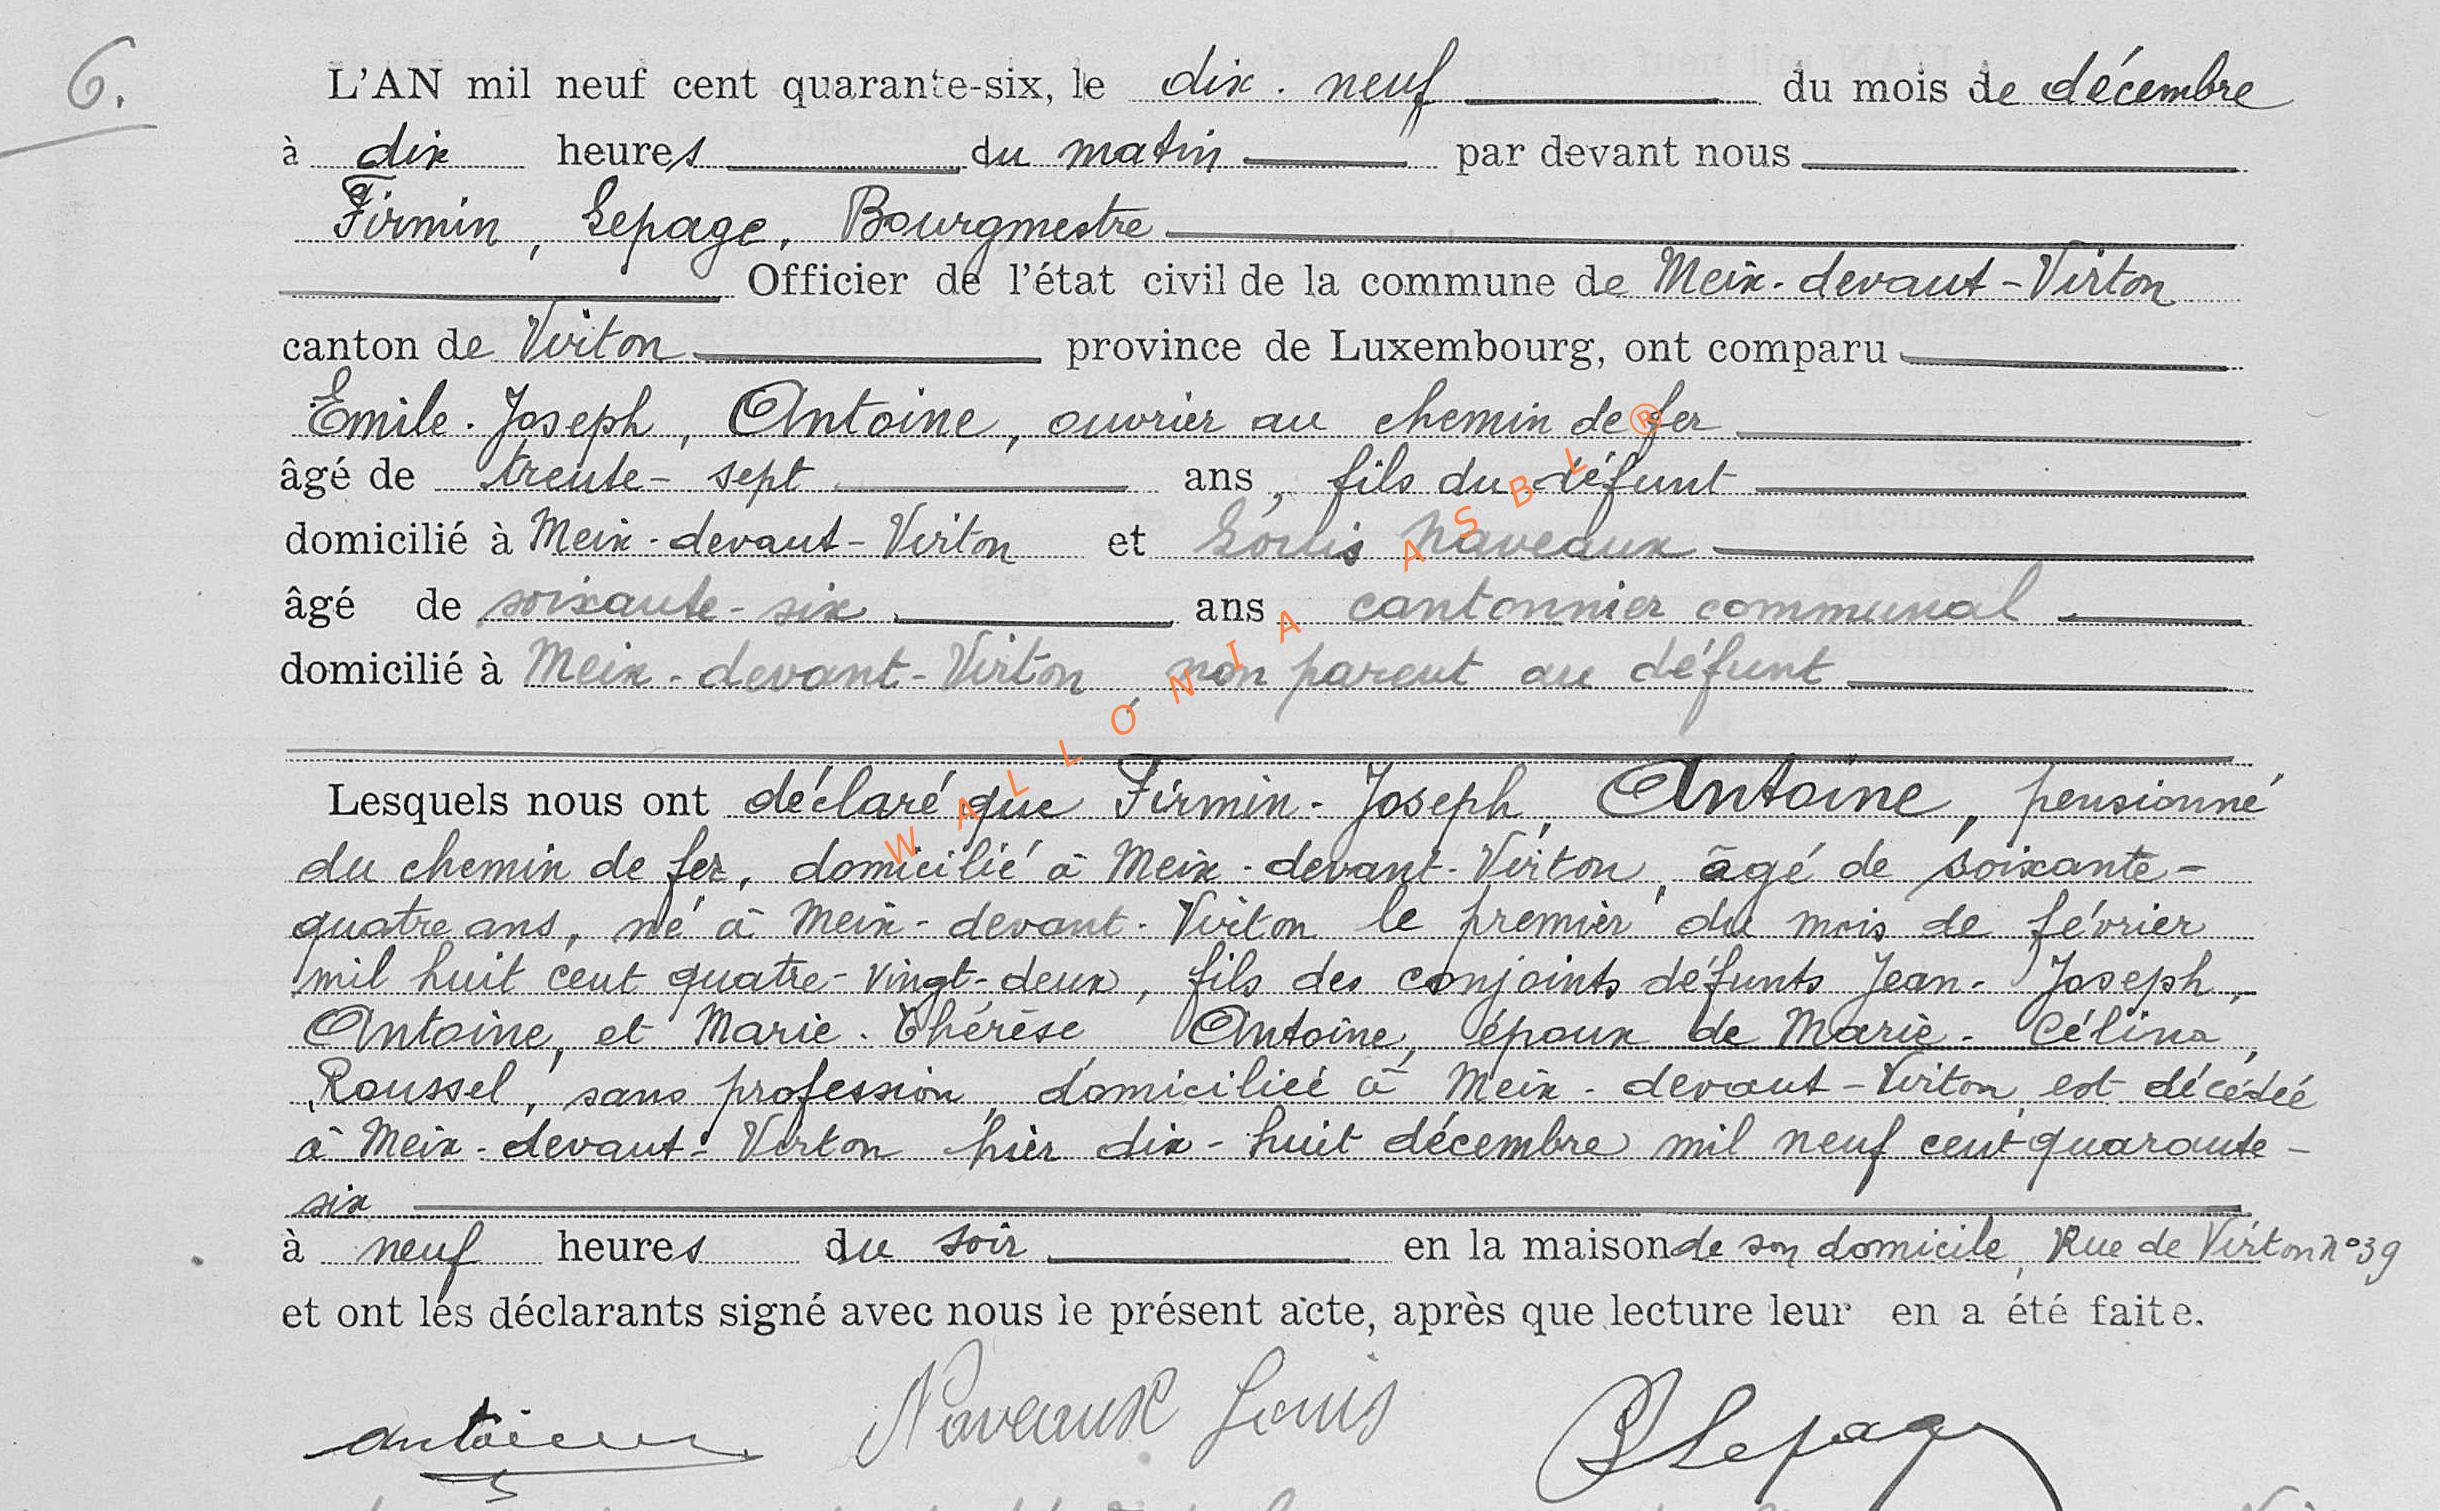 6.
L'AN mil neuf cent quarante-six, le dix-neuf du mois de décembre
à dix heures du matin par devant nous
Firmin, Lepage, Bourgmestre
Officier de l'état civil de la commune de Meix-devant-Virton
canton de Virton province de Luxembourg, ont comparu
Emile-Joseph, Antoine, ouvrier au chemin de fer
âgé de trente-sept ans, fils du défunt
domicilié à Meix-devant-Virton et Louis Naveaux
âgé de soixante-six ans cantonnier communal
domicilié à Meix-devant-Virton, non parent au défunt
WALLONIA ASBL ®
Lesquels nous ont déclaré que Firmin-Joseph, Antoine, pensionné
du chemin de fer, domicilié à Meix-devant-Virton, âgé de soixante-
quatre ans, né à Meix-devant-Virton le premier du mois de février
mil huit cent quatre-vingt-deux, fils des conjoints défunts Jean-Joseph,
Antoine, et Marie-Thérèse Antoine, époux de Marie-Célina,
Roussel, sans profession, domiciliée à Meix-devant-Virton, est décédéé
à Meix-devant-Virton hier dix-huit décembre mil neuf cent quarante-
six
à neuf heures du soir en la maison de son domicile, Rue de Virton n°39
et ont les déclarants signé avec nous le présent acte, après que lecture leur en a été faite.
Antoine Naveaux Louis Lepage